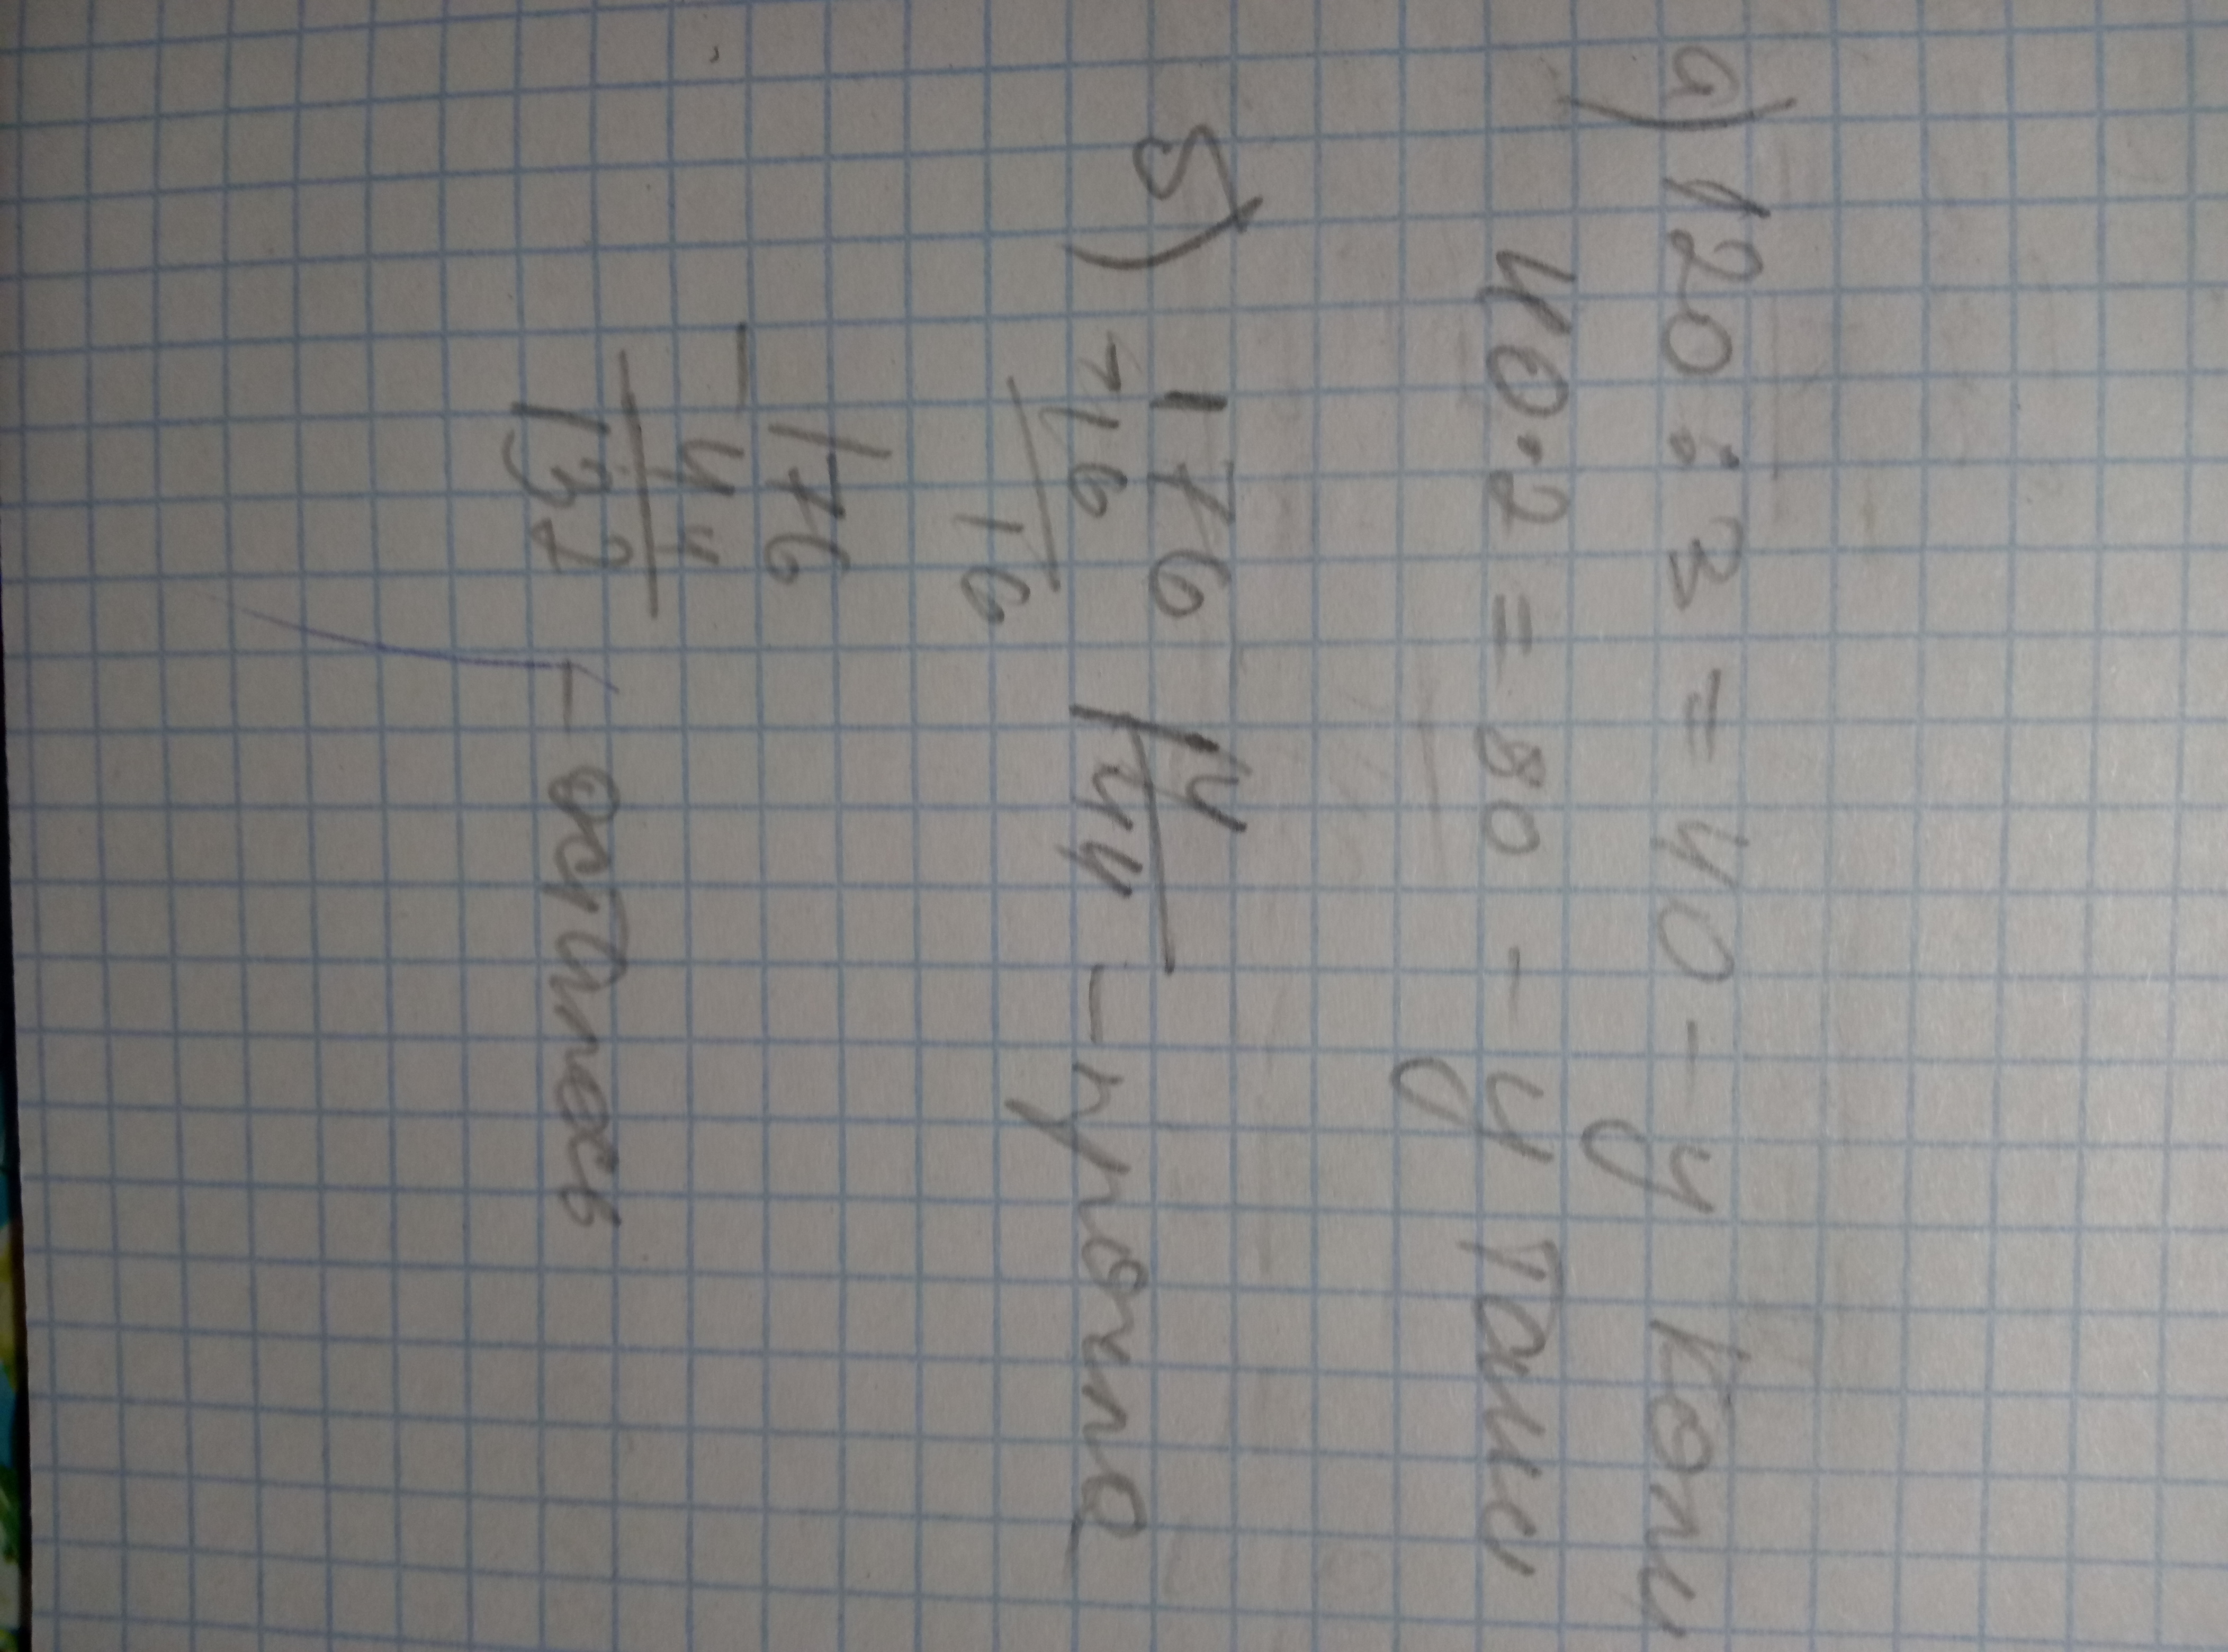 а) 120 : 3 = 40 - у Коли
40 · 2 = 80 - у Тани
б) 176 | 4
- 16 | 44 - прочла
16
- 176
44
132 - осталось